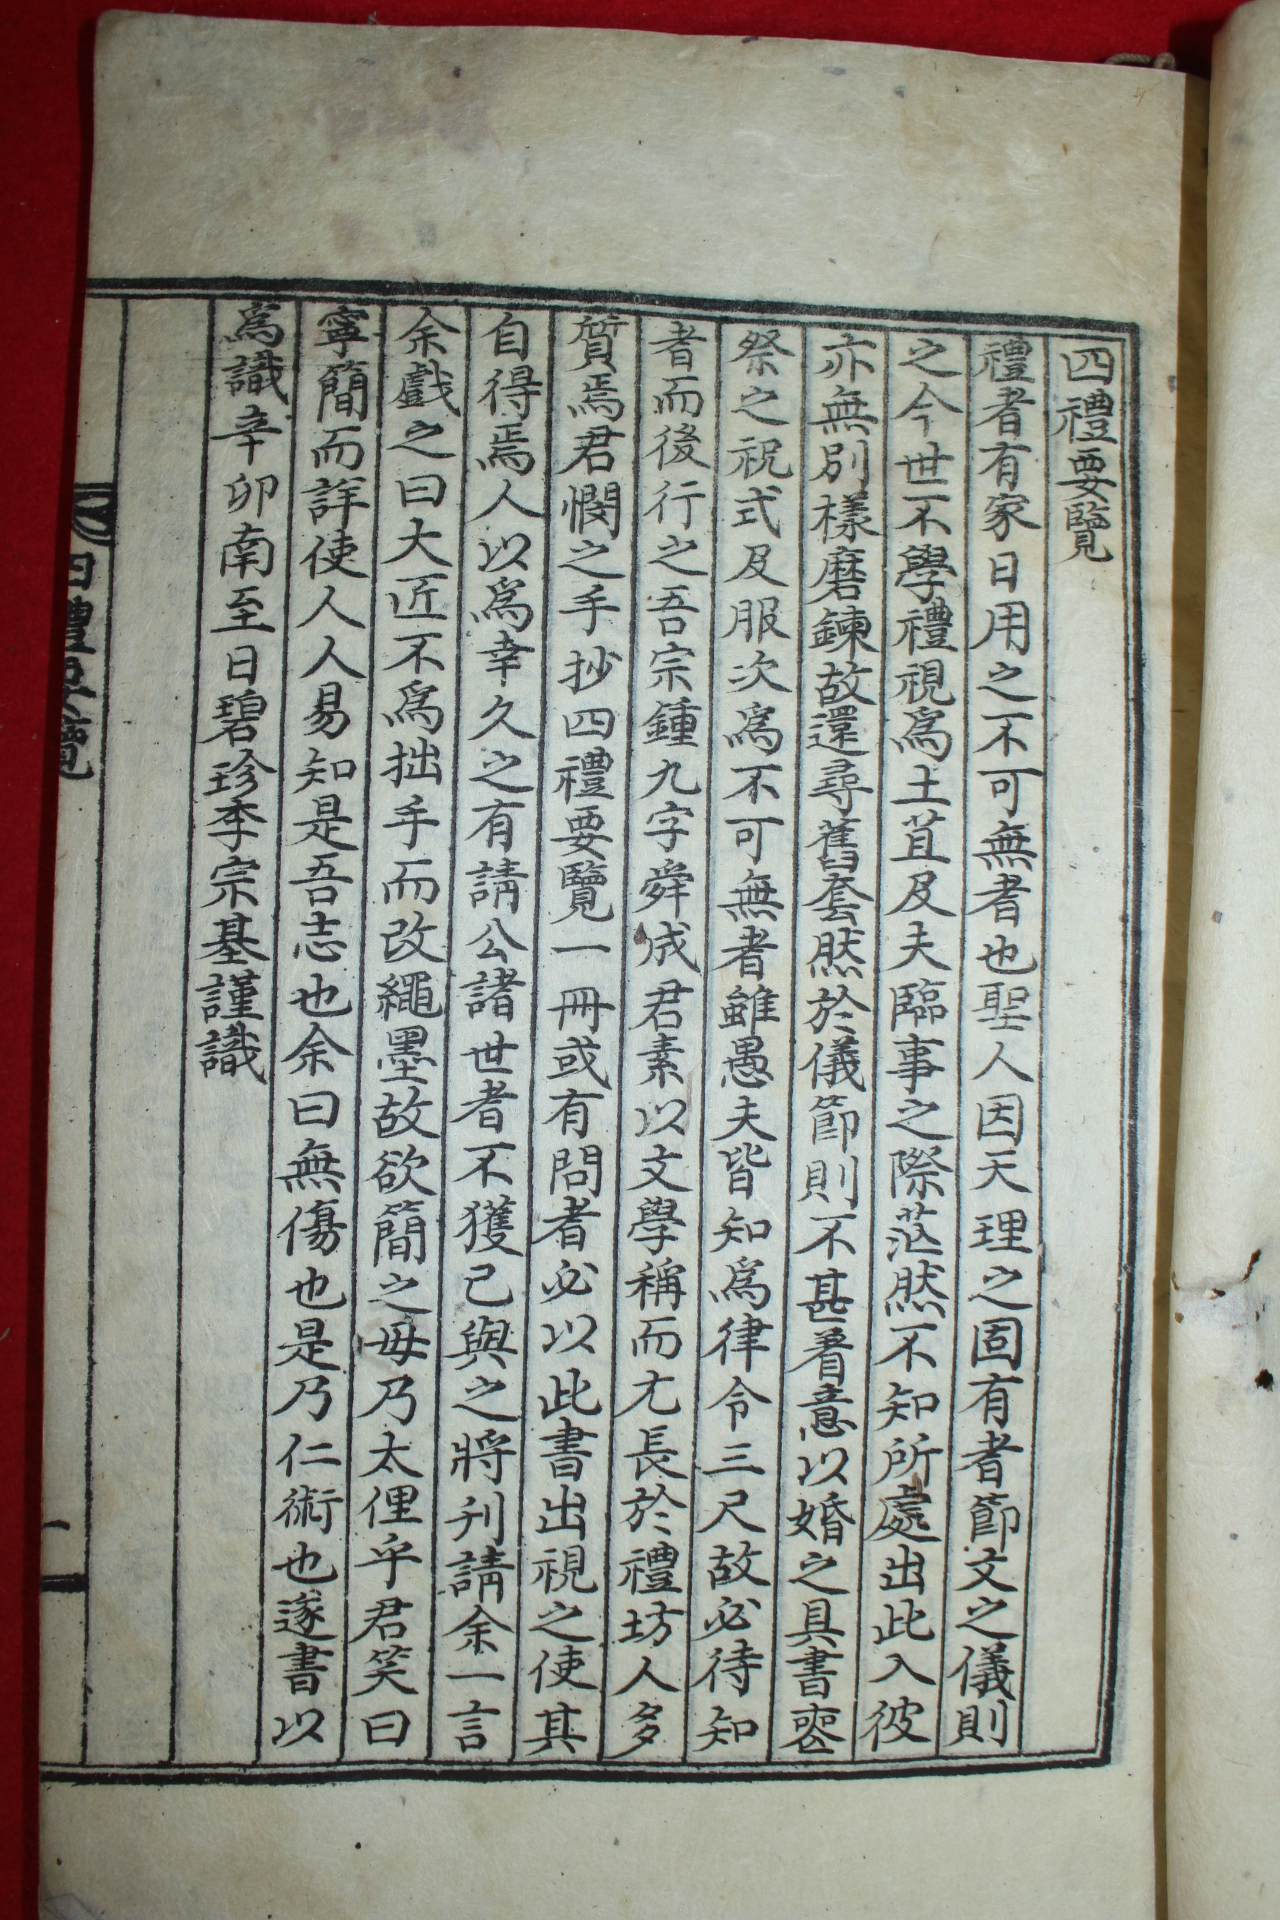 四禮要覽
禮者有家日用之不可無者也聖人因天理之固有者節文之儀則
之今世不學禮視爲土苴及夫臨事之際茫然不知所處出此入彼
亦無別樣磨鍊故還尋舊套然於儀節則不甚着意以婚之具書喪
祭之祝式及服次爲不可無者雖愚夫皆知爲律令三尺故必待知
者而後行之吾宗鍾九字舜成君素以文學稱而尤長於禮坊人多
質焉君憫之手抄四禮要覽一冊或有問者必以此書出視之使其
自得焉人以爲幸久之有請公諸世者不獲已與之將刊請余一言
余戲之曰大匠不爲拙手而改繩墨故欲簡之毋乃太俚乎君笑曰
寧簡而詳使人人易知是吾志也余曰無傷也是乃仁術也遂書以
爲識辛卯南至日碧珍李宗基謹識
四禮要覽
一